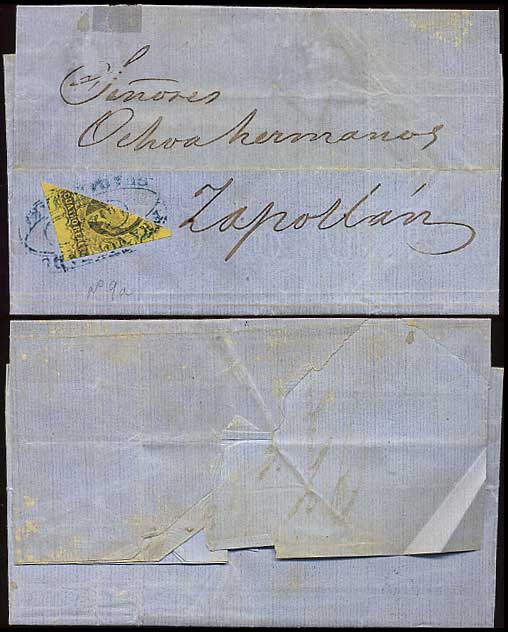 Señores
Ochoa hermanos
Zapotlán
Nº 9a